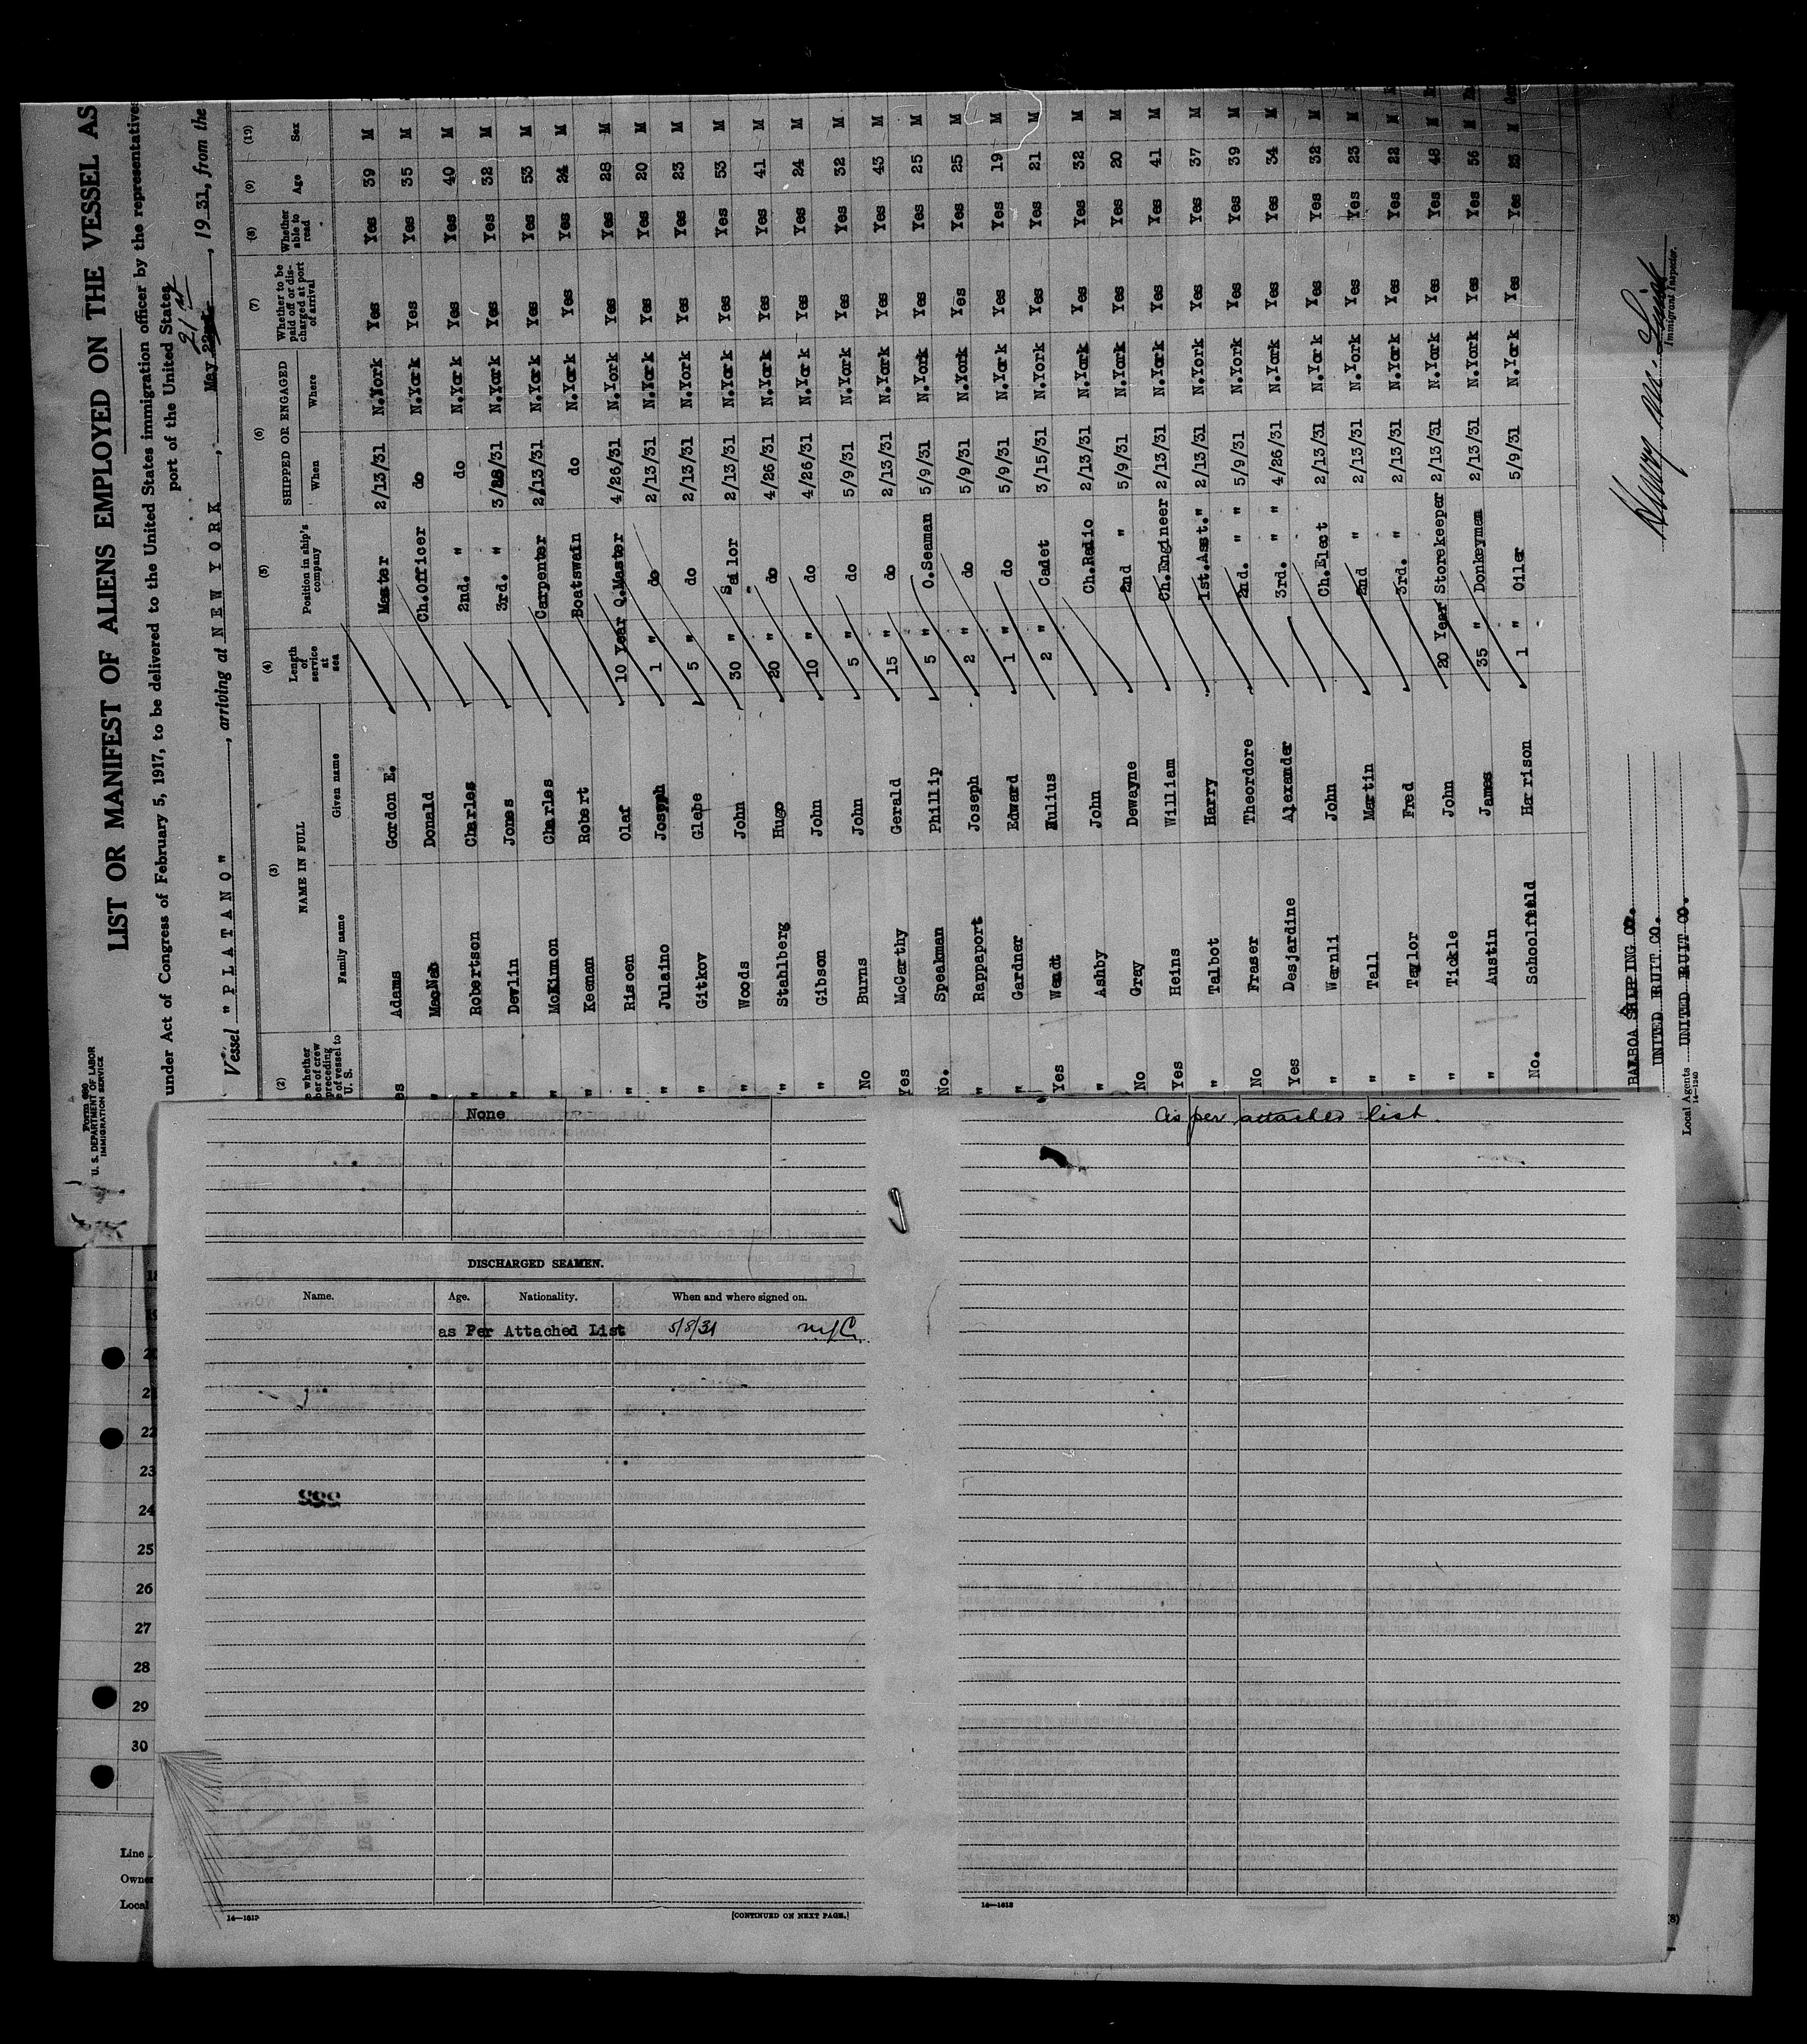 Form 680
U. S. DEPARTMENT OF LABOR
IMMIGRATION SERVICE
LIST OR MANIFEST OF ALIENS EMPLOYED ON THE VESSEL AS
under Act of Congress of February 5, 1917, to be delivered to the United States immigration officer by the representatives
port of the United States
21st
Vessel "PLATANO", arriving at NEW YORK, May 22nd, 1931, from the
(2) (3) (4) (5) (6) (7) (8) (9) (10)
whether
ber of crew
preceding
e of vessel to
U. S.
NAME IN FULL
Family name Given name
Length of service at sea
Position in ship's company
SHIPPED OR ENGAGED
When Where
Whether to be paid off or discharged at port of arrival
Whether able to read
Age
Sex
es Adams Gordon E. Master 2/13/31 N.York Yes Yes 39 M
" Donald Ch.Officer do N.York Yes Yes 35 M
" Robertson Charles 2nd. " do N.York Yes Yes 40 M
" Devlin Jones 3rd. " N.York Yes Yes 32 M
" McKimon Charles Carpenter 2/13/31 N.York Yes Yes 53 M
" Keenan Robert Boatswain do N.York Yes Yes 24 M
" Risoen Olaf 10 Year Q.Master 4/26/31 N.York Yes Yes 28 M
" Julaino Joseph 1 " do 2/13/31 N.York Yes Yes 20 M
" Gitkov Glebe 5 " do 2/13/31 N.York Yes Yes 23 M
" Woods John 30 " Sailor 2/13/31 N.York Yes Yes 53 M
" Stahlberg Hugo 20 " do 4/26/31 N.York Yes Yes 41 M
" Gibson John 10 " do 4/26/31 N.York Yes Yes 24 M
No Burns John 5 " do 5/9/31 N.York Yes Yes 32 M
Yes McCarthy Gerald 15 " do 2/13/31 N.York Yes Yes 43 M
No. Speakman Phillip 5 " O.Seaman 5/9/31 N.York Yes Yes 25 M
" Rappaport Joseph 2 " do 5/9/31 N.York Yes Yes 25 M
" Gardner Edward 1 " do 5/9/31 N.York Yes Yes 19 M
Yes Wendt 2 " Cadet 3/15/31 N.York Yes Yes 21 M
" Ashby John Ch.Radio 2/13/31 N.York Yes Yes 32 M
No Gray Dewayne 2nd " 5/9/31 N.York Yes Yes 20 M
Yes Heins William Ch.Engineer 2/13/31 N.York Yes Yes 41 M
" Talbot Harry 1st.Asst." 2/13/31 N.York Yes Yes 37 M
No Fraser Theordore 2nd. " " 5/9/31 N.York Yes Yes 39 M
Yes Desjardine Alexander 3rd. " " 4/26/31 N.York Yes Yes 34 M
" Wernli John Ch.Elect 2/13/31 N.York Yes Yes 32 M
" Tall Martin 2nd " 2/13/31 N.York Yes Yes 23 M
" Taylor Fred 3rd. " 2/13/31 N.York Yes Yes 22
" Tickle John 20 Year Storekeeper 2/13/31 N.York Yes Yes 48 M
" Austin James 35 " Donkeyman 2/13/31 N.York Yes Yes 56 M
No. Schoolfield Harrison 1 " Oiler 5/9/31 N.York Yes Yes 23 M
BALBOA SHIPPING CO.
UNITED FRUIT CO.
Local Agents UNITED FRUIT CO.
14—1240
Immigrant Inspector.
None
DISCHARGED SEAMEN.
Name. Age. Nationality. When and where signed on.
as Per Attached List 5/8/31 NYC
14—1613
[CONTINUED ON NEXT PAGE.]
As per attached list.
14—1613
22
23
24
25
26
27
28
29
30
Line
Owner
Local
(8)